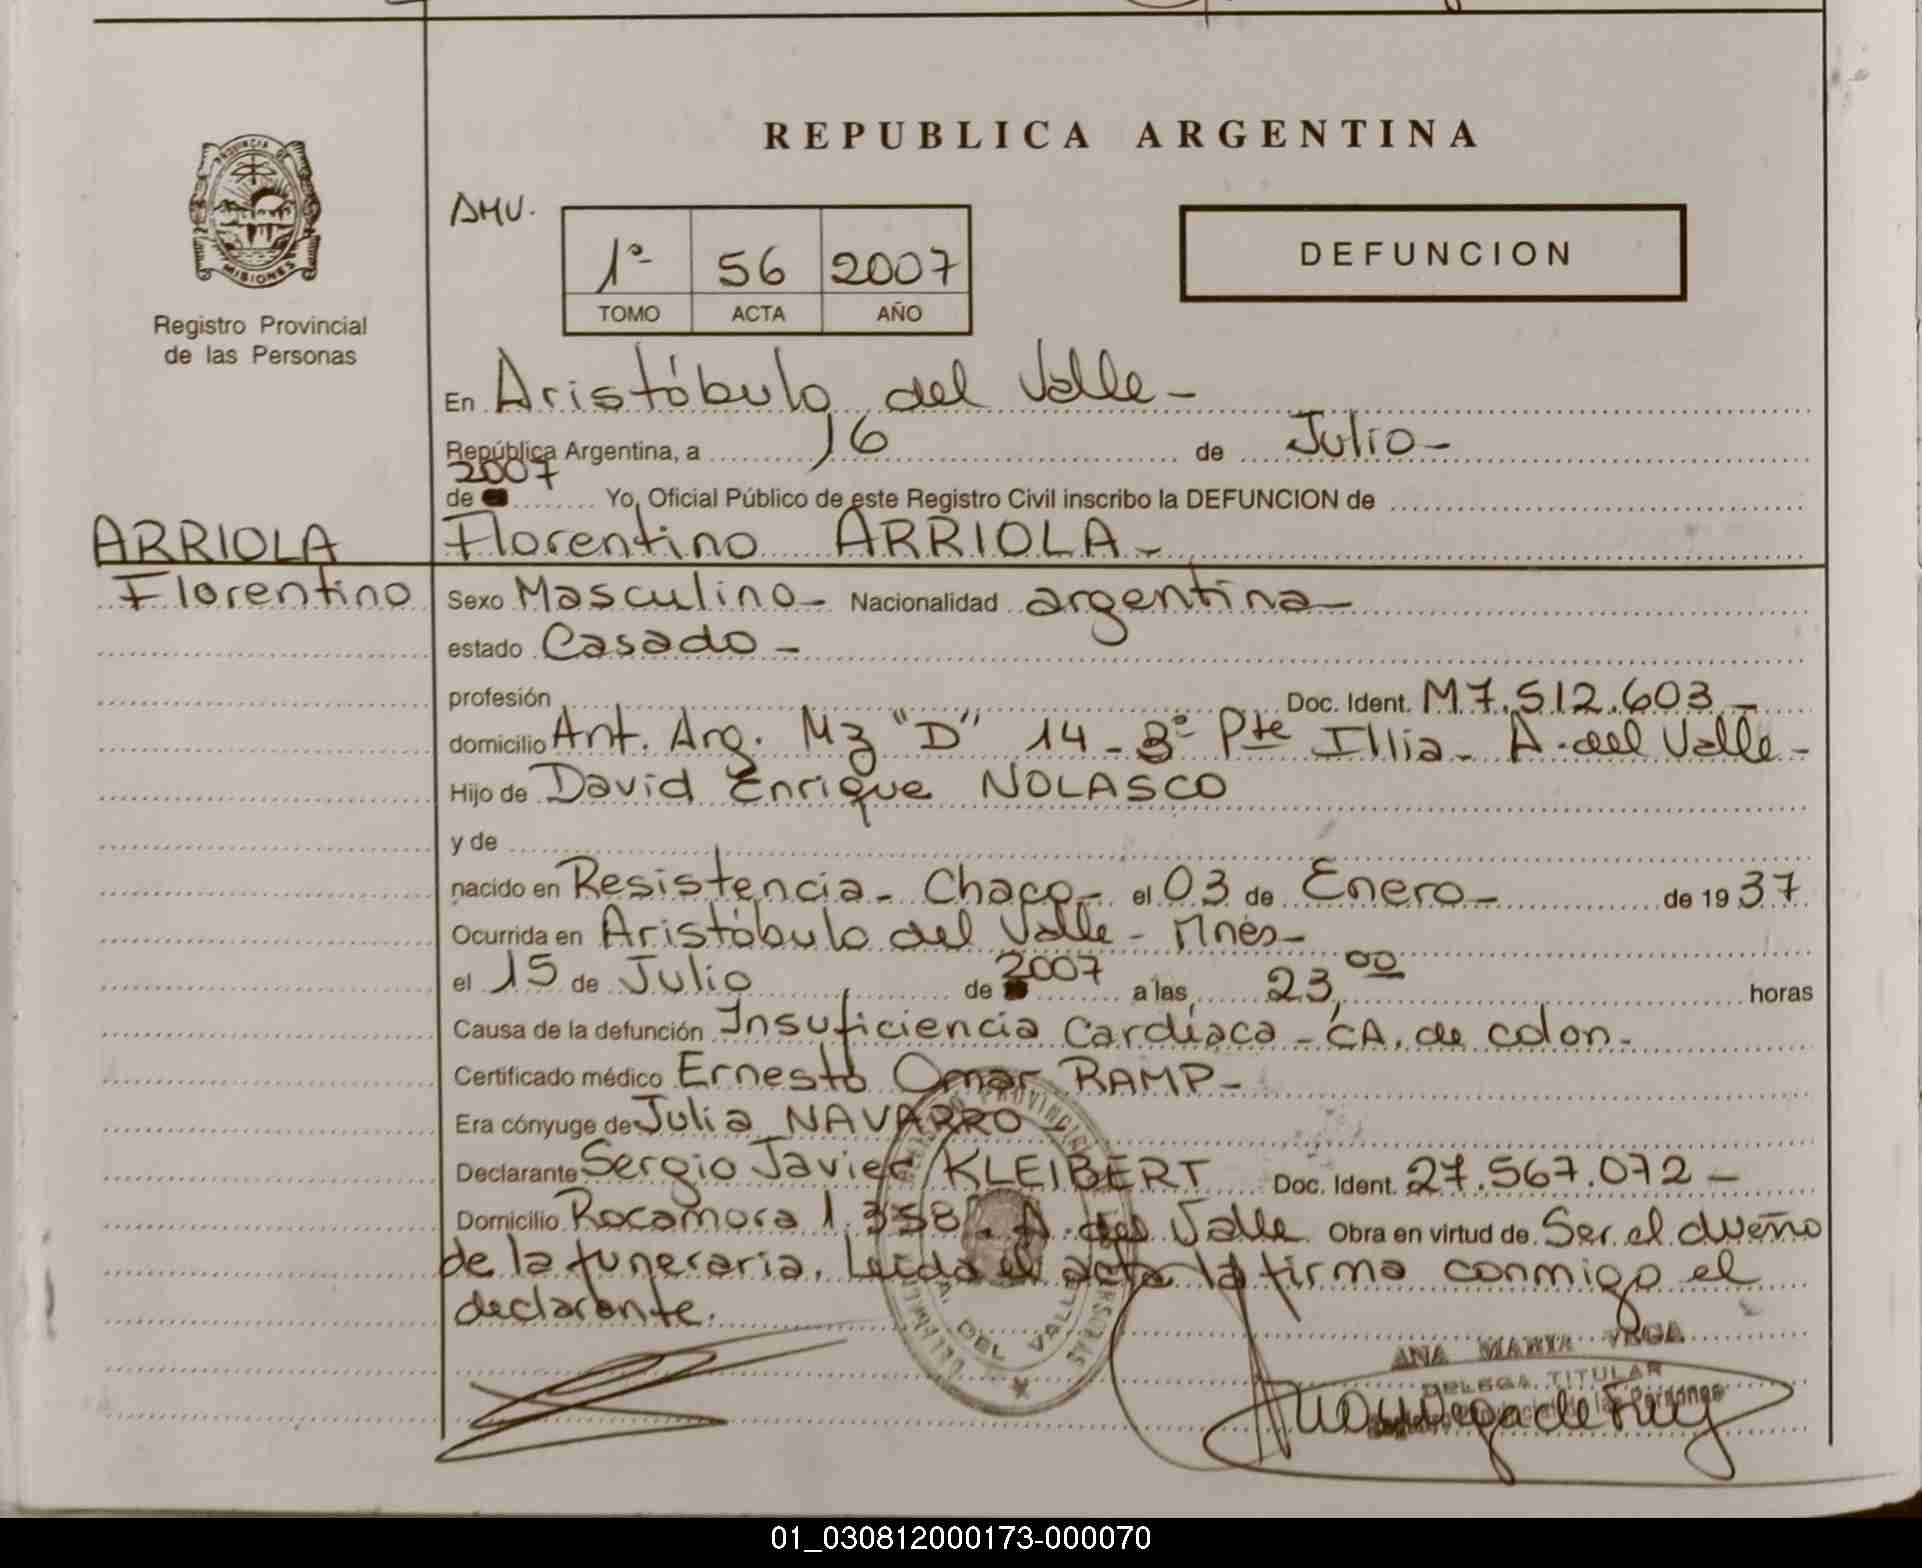 REPUBLICA ARGENTINA
PROVINCIA DE
MISIONES
Registro Provincial
de las Personas
AMV.
1º- 56 2007
TOMO ACTA AÑO
DEFUNCION
En Aristóbulo del Valle -
República Argentina, a 16 de Julio -
2007
de Yo, Oficial Público de este Registro Civil inscribo la DEFUNCION de
ARRIOLA Florentino ARRIOLA -
Florentino Sexo Masculino - Nacionalidad argentina -
estado Casado -
profesión Doc. Ident. M7.512.603 -
domicilio Ant. Arg. Mz "D" 14 - 3º Pte Illia - A. del Valle -
Hijo de David Enrique NOLASCO
y de
nacido en Resistencia - Chaco - el 03 de Enero - de 19 37
Ocurrida en Aristóbulo del Valle - Mnes -
el 15 de Julio de 2007 a las 23,00 horas
Causa de la defunción Insuficiencia Cardíaca - CA. de colon.
Certificado médico Ernesto Omar RAMP -
Era cónyuge de Julia NAVARRO
Declarante Sergio Javier KLEIBERT Doc. Ident. 27.567.072 -
Domicilio Rocamora 1.358 - A. del Valle Obra en virtud de Ser el dueño
de la funeraria. Leida el acta la firma conmigo el
declarante.
DEL VALLE
ANA MARIA VEGA
DELEGA. TITULAR
de las Personas
01_030812000173-000070